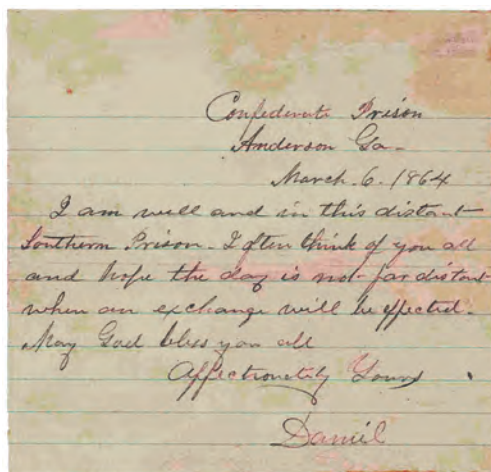 Confederate Prison
Anderson Ga-
March. 6. 1864
I am well and in this distant
Southern Prison. I often think of you all
and hope the day is not far distant
when an exchange will be effected.
May God bless you all
Affectionately Yours
Daniel